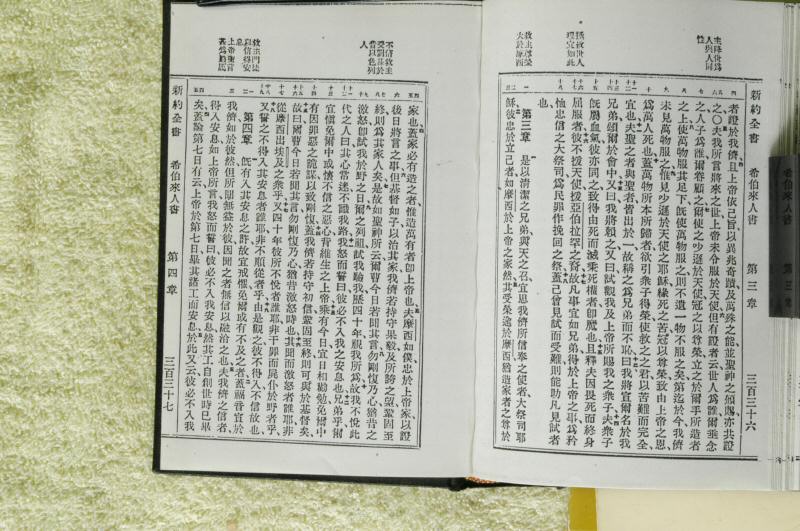 新約全書 希伯來人書 第三章 三百三十六
主降世爲
人與人同
性
拯救世人
理宜如此
救主尊榮
大於摩西
者證於我儕且上帝依己旨以異兆奇蹟及萬殊之能並聖神之頒賜亦共證
之〇夫我所言將來之世上帝未令服於天使但有證者云世人爲誰爾垂念
之人子爲誰爾眷顧之爾使之少遜於天使冠之以尊榮立之於爾手所造者
之上使萬物服其足下旣使萬物服之則不遺一物不服之矣第迄於今我儕
未見萬物服之惟見少遜於天使之耶穌緣死之苦冠以尊榮致由上帝之恩
爲萬人死也蓋萬物所本所歸者欲引衆子得榮使救之之君以苦難而完全
宜也夫聖之者與聖者皆出於一故稱之爲兄弟而不恥曰我將宣爾名於我
兄弟頌爾於會中又曰我將賴之又曰試觀我及上帝所賜我之衆子夫衆子
旣屬血氣彼亦同之致得由死而滅秉死權者卽魔也且釋夫因畏死而終身
屈服者彼不援天使援亞伯拉罕之裔故凡事宜如兄弟得於上帝之事爲矜
恤忠信之大祭司爲民罪作挽回之祭蓋己曾見試而受難則能助凡見試者
也
第三章 是以清潔之兄弟與天之召宜思我儕所信奉之使者大祭司耶
穌彼忠於立己者如摩西於上帝之家然其受榮逾於摩西猶造家者之尊於
不信救主
受罰甚於
昔以色列
人
救主門徒
以信得安
息
上帝聖言
家也蓋家必有造之者惟造萬有者卽上帝也夫摩西如僕忠於上帝家以證
後日將言之事但基督如子以治其家我儕若持守果毅及所誇之望鞏固至
終則爲其家人矣是故如聖神所云爾曹今日若聞其言勿剛愎乃心猶昔之
激怒卽試我於野之日爾之列祖試我驗我歷四十年觀我所爲故我不悅此
代之人曰其心常迷不識我路我怒而誓曰彼必不入我之安息也兄弟乎爾
宜愼免爾中或懷不信之惡心背維生之上帝乘有今日宜日相勸勉免爾中
有因罪惡之詭謀以致剛愎蓋我儕若持守初信鞏固至終則可與於基督矣
故曰爾曹今日若聞其言勿剛愎乃心猶昔激怒時也其聞而激怒者誰耶非
從摩西出埃及之衆乎又四十年彼所不悅者誰耶非干罪而屍仆於野者乎
又誓之不得入其安息者誰耶非不順從者乎由是觀之彼不得入不信故也
第四章 旣有入其安息之許故宜戒懼免爾或有不及之者蓋福音宣於
我儕如於彼然但所聞無益於彼因聞之者無信以融洽之也夫我儕之信者
得入安息如上帝所言我怒而誓曰彼必不入我安息然其工自創世時已畢
矣蓋論第七日有云上帝於第七日畢其諸工而安息於此又云彼必不入我
新約全書 希伯來人書 第四章 三百三十七
希伯來人書
第三章